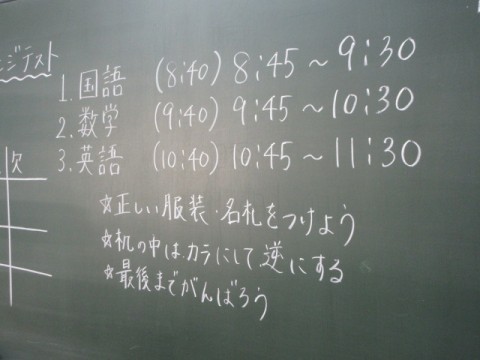 ジテスト
1. 国語 (8:40) 8:45〜9:30
2. 数学 (9:40) 9:45〜10:30
3. 英語 (10:40) 10:45〜11:30
次
☆正しい服装・名札をつけよう
☆机の中はカラにして逆にする
☆最後までがんばろう